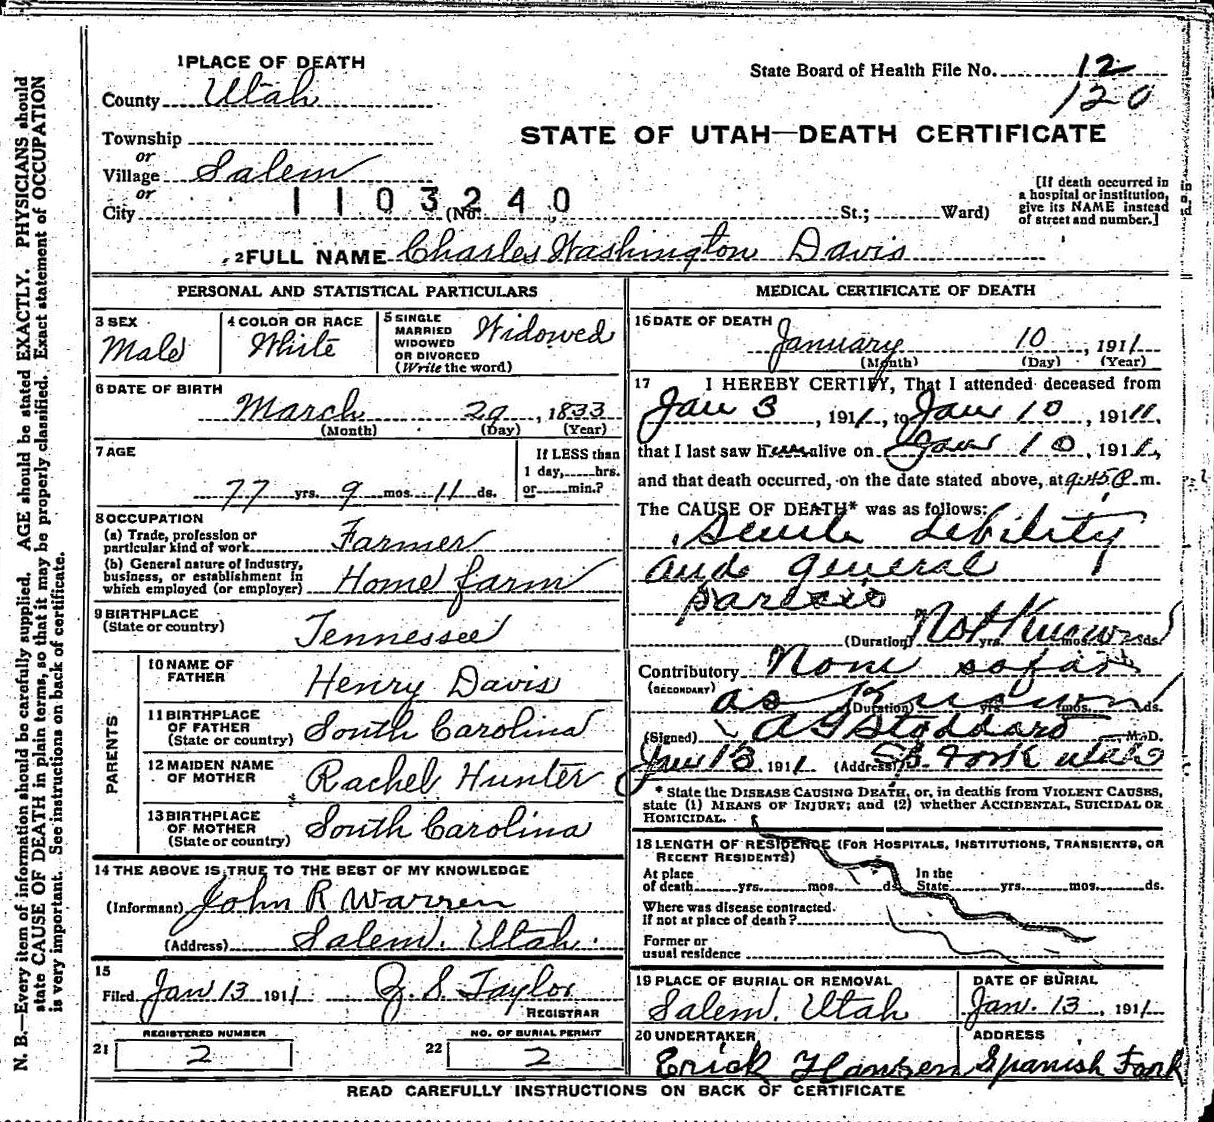 1 PLACE OF DEATH
County Utah
State Board of Health File No. 12
120
Township
or
Village Salem
or
City (No. St.; Ward)
1103240
STATE OF UTAH—DEATH CERTIFICATE
[If death occurred in
a hospital or institution,
give its NAME instead
of street and number.]
2 FULL NAME Charles Washington Davis
PERSONAL AND STATISTICAL PARTICULARS
3 SEX
Male
4 COLOR OR RACE
White
5 SINGLE
MARRIED
WIDOWED
OR DIVORCED
(Write the word)
Widowed
6 DATE OF BIRTH
March 29, 1833
(Month) (Day) (Year)
7 AGE
77 yrs. 9 mos. 11 ds.
If LESS than
1 day, hrs.
or min.?
8 OCCUPATION
(a) Trade, profession or
particular kind of work Farmer
(b) General nature of Industry,
business, or establishment in
which employed (or employer) Home farm
9 BIRTHPLACE
(State or country) Tennessee
PARENTS
10 NAME OF
FATHER Henry Davis
11 BIRTHPLACE
OF FATHER
(State or country) South Carolina
12 MAIDEN NAME
OF MOTHER Rachel Hunter
13 BIRTHPLACE
OF MOTHER
(State or country) South Carolina
14 THE ABOVE IS TRUE TO THE BEST OF MY KNOWLEDGE
(Informant) John R Warren
(Address) Salem, Utah.
15
Filed Jan 13 1911
Taylor
REGISTRAR
REGISTERED NUMBER
21 2
NO. OF BURIAL PERMIT
22 2
MEDICAL CERTIFICATE OF DEATH
16 DATE OF DEATH
January 10, 1911
(Month) (Day) (Year)
17 I HEREBY CERTIFY, That I attended deceased from
Jan 3, 1911, to Jan 10, 1911,
that I last saw him alive on Jan 10, 1911,
and that death occurred, on the date stated above, at 9.45 P.m.
The CAUSE OF DEATH* was as follows:
Senile debility
and general
paresis
(Duration) Not Known yrs. mos. ds.
Contributory None so far
(SECONDARY)
as Known
(Duration) yrs. mos. ds.
(Signed) A G Stoddard M.D.
Jan 13, 1911 (Address) Sp. Fork Utah
* State the DISEASE CAUSING DEATH, or, in deaths from VIOLENT CAUSES,
state (1) MEANS OF INJURY; and (2) whether ACCIDENTAL, SUICIDAL OR
HOMICIDAL.
18 LENGTH OF RESIDENCE (FOR HOSPITALS, INSTITUTIONS, TRANSIENTS, OR
RECENT RESIDENTS)
At place
of death yrs. mos. ds.
In the
State yrs. mos. ds.
Where was disease contracted.
If not at place of death?
Former or
usual residence
19 PLACE OF BURIAL OR REMOVAL
Salem, Utah
DATE OF BURIAL
Jan. 13, 1911
20 UNDERTAKER
Erick Hansen
ADDRESS
Spanish Fork
READ CAREFULLY INSTRUCTIONS ON BACK OF CERTIFICATE
N. B.—Every item of information should be carefully supplied. AGE should be stated EXACTLY. PHYSICIANS should
state CAUSE OF DEATH in plain terms, so that it may be properly classified. Exact statement of OCCUPATION
is very important. See instructions on back of certificate.